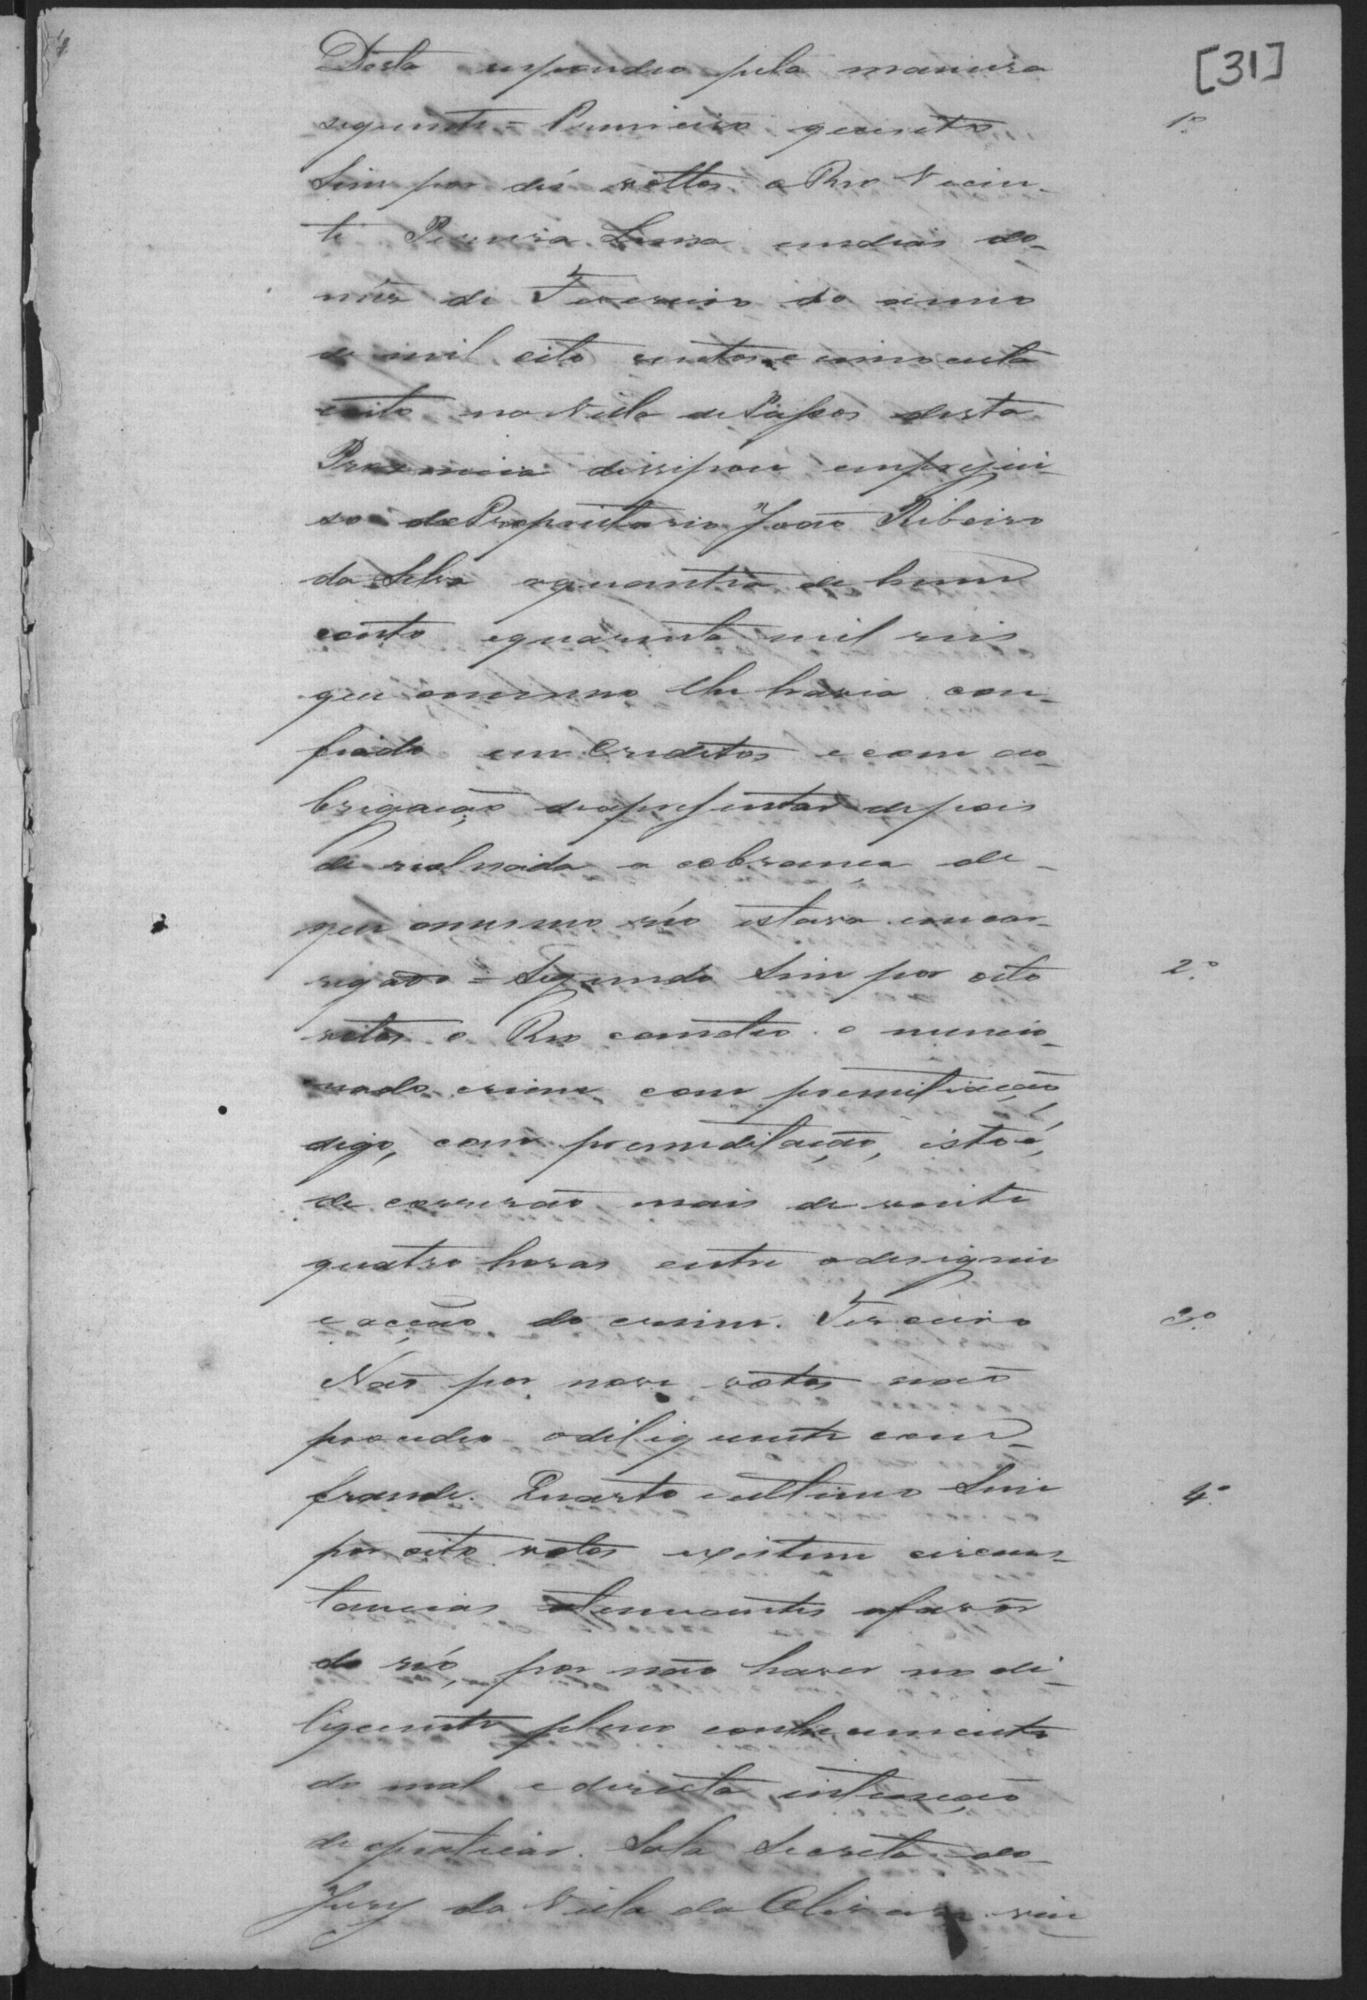 [31]
Desta respondeo pela maneira
seguinte = Primeiro quesito 1º
Sim por dés vottos o Reo Vicen-
te Pereira Lima em dias do
mez de Fevereiro do anno
de mil oito centos e cincoenta
eoito na Villa de Patos desta
Provincia dissipou emprejui-
so do Proprietario João Ribeiro
da Silva aquantia de hum
conto equarenta mil reis
que omesmo lhe havia con-
fiado em Creditos e com ao-
brigação deapresentar depois
de realisada a cobrança de
que omesmo réo estava encar-
regado = Segundo Sim por oito 2º
votos o Reo cometeo o mencio-
nado crime com premiliação
digo, com premeditação, isto é,
de correrão mais de vinte
quatro horas entre odesignio
e acção do crime. Terceiro 3º
Não por nove votos não
procedeo odeliquente com
fraude. Quarto eultimo Sim 4º
por oito votos existem circuns-
tancias atenuantes afavor
do réo, por não haver no de-
liquente pleno conhecimento
do mal e directa intenção
de opraticar. Sala Secreta do
Jury da Villa da Oliveira vin